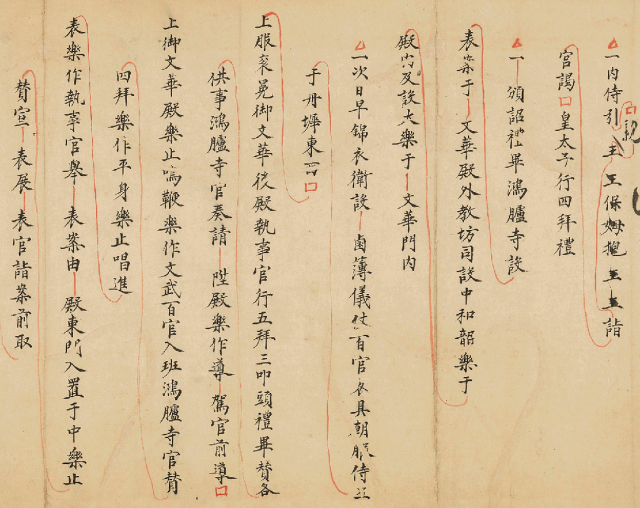 一內侍引 王 王保姆抱 王 王詣
宮謁 皇太子行四拜禮
一 頒詔禮畢鴻臚寺設
表案于 文華殿外教坊司設中和韶樂于
殿內及設大樂于 文華門內
一次日早錦衣衛設 鹵簿儀仗百官各具朝服侍立
于丹墀東西
上服袞冕御文華後殿執事官行五拜三叩頭禮畢贊各
供事鴻臚寺官奏請 陞殿樂作導 駕官前導
上御文華殿樂止鳴鞭樂作文武百官入班鴻臚寺官贊
四拜樂作平身樂止唱進
表樂作執事官舉 表案由 殿東門入置于中樂止
贊宣 表展 表官詣案前取